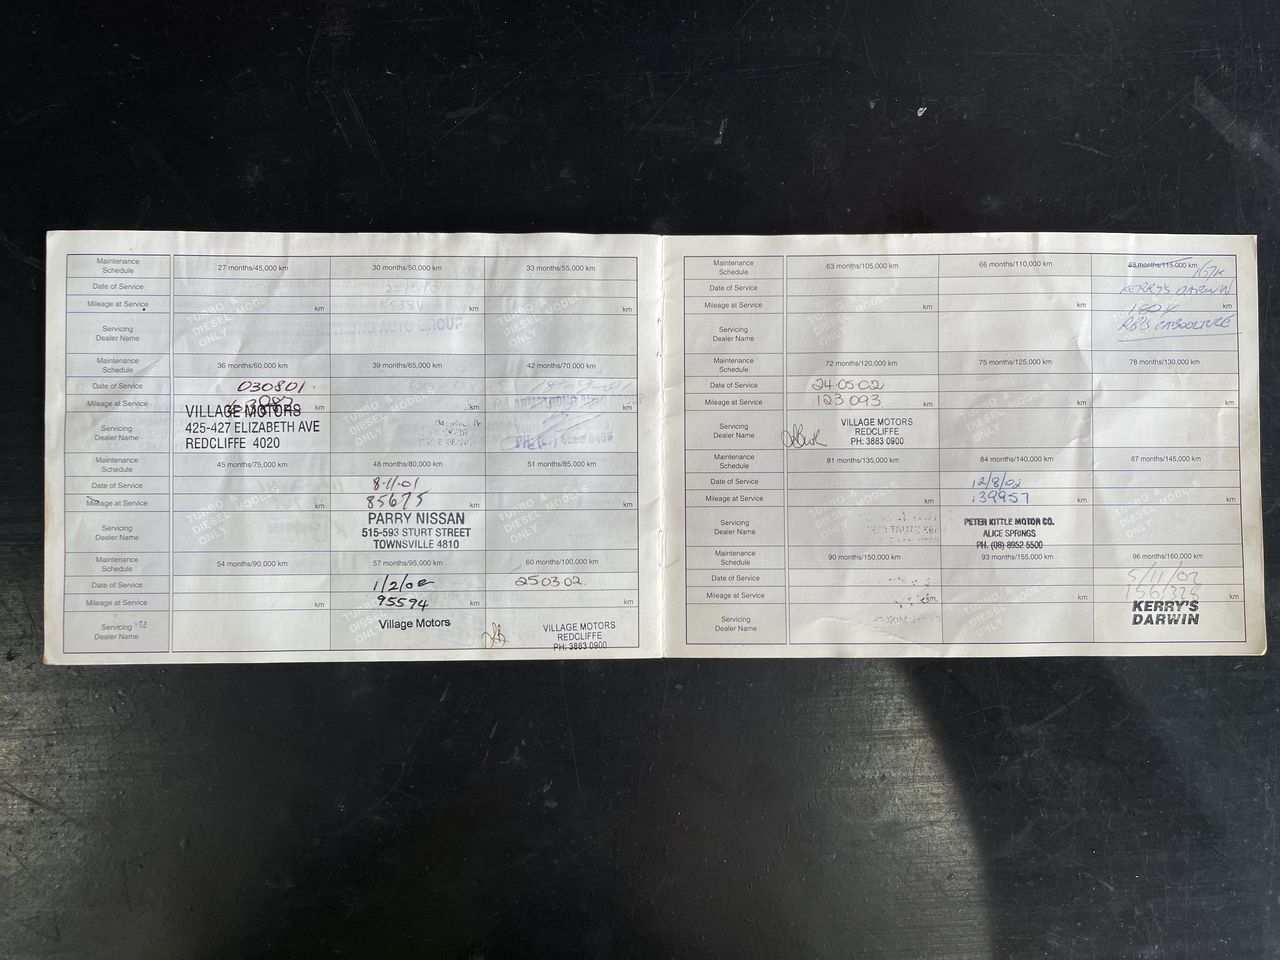 Maintenance Schedule
27 months/45,000 km
30 months/50,000 km
33 months/55,000 km
Date of Service
22/6/01
Mileage at Service
km
km
Servicing Dealer Name
TURBO & DIESEL MODELS ONLY
AUTO GROUP
TURBO & DIESEL MODELS ONLY
Maintenance Schedule
36 months/60,000 km
39 months/65,000 km
42 months/70,000 km
Date of Service
030801
Mileage at Service
km
km
km
Servicing Dealer Name
VILLAGE MOTORS
425-427 ELIZABETH AVE
REDCLIFFE 4020
TURBO & DIESEL MODELS ONLY
ARMSTRONG AUTO GROUP
Maintenance Schedule
45 months/75,000 km
48 months/80,000 km
51 months/85,000 km
Date of Service
8-11-01
Mileage at Service
km
85675
km
km
Servicing Dealer Name
TURBO & DIESEL MODELS ONLY
PARRY NISSAN
515-593 STURT STREET
TOWNSVILLE 4810
TURBO & DIESEL MODELS ONLY
Maintenance Schedule
54 months/90,000 km
57 months/95,000 km
60 months/100,000 km
Date of Service
1/2/02
25.03.02
Mileage at Service
km
95594
km
km
Servicing Dealer Name
TURBO & DIESEL MODELS ONLY
Village Motors
VILLAGE MOTORS
REDCLIFFE
PH: 3883 0900
Maintenance Schedule
63 months/105,000 km
66 months/110,000 km
69 months/115,000 km
167K
Date of Service
KERRY'S DARWIN
Mileage at Service
km
km
km
Servicing Dealer Name
TURBO & DIESEL MODELS ONLY
CABOOLTURE
Maintenance Schedule
72 months/120,000 km
75 months/125,000 km
78 months/130,000 km
Date of Service
24.05.02
Mileage at Service
123 093
km
km
km
Servicing Dealer Name
VILLAGE MOTORS
REDCLIFFE
PH: 3883 0900
TURBO & DIESEL MODELS ONLY
Maintenance Schedule
81 months/135,000 km
84 months/140,000 km
87 months/145,000 km
Date of Service
12/8/02
Mileage at Service
km
139957
km
km
Servicing Dealer Name
TURBO & DIESEL MODELS ONLY
PETER KITTLE MOTOR CO.
ALICE SPRINGS
PH. (08) 8952 5500
TURBO & DIESEL MODELS ONLY
Maintenance Schedule
90 months/150,000 km
93 months/155,000 km
96 months/160,000 km
Date of Service
5/11/02
Mileage at Service
km
km
km
Servicing Dealer Name
TURBO & DIESEL MODELS ONLY
KERRY'S
DARWIN